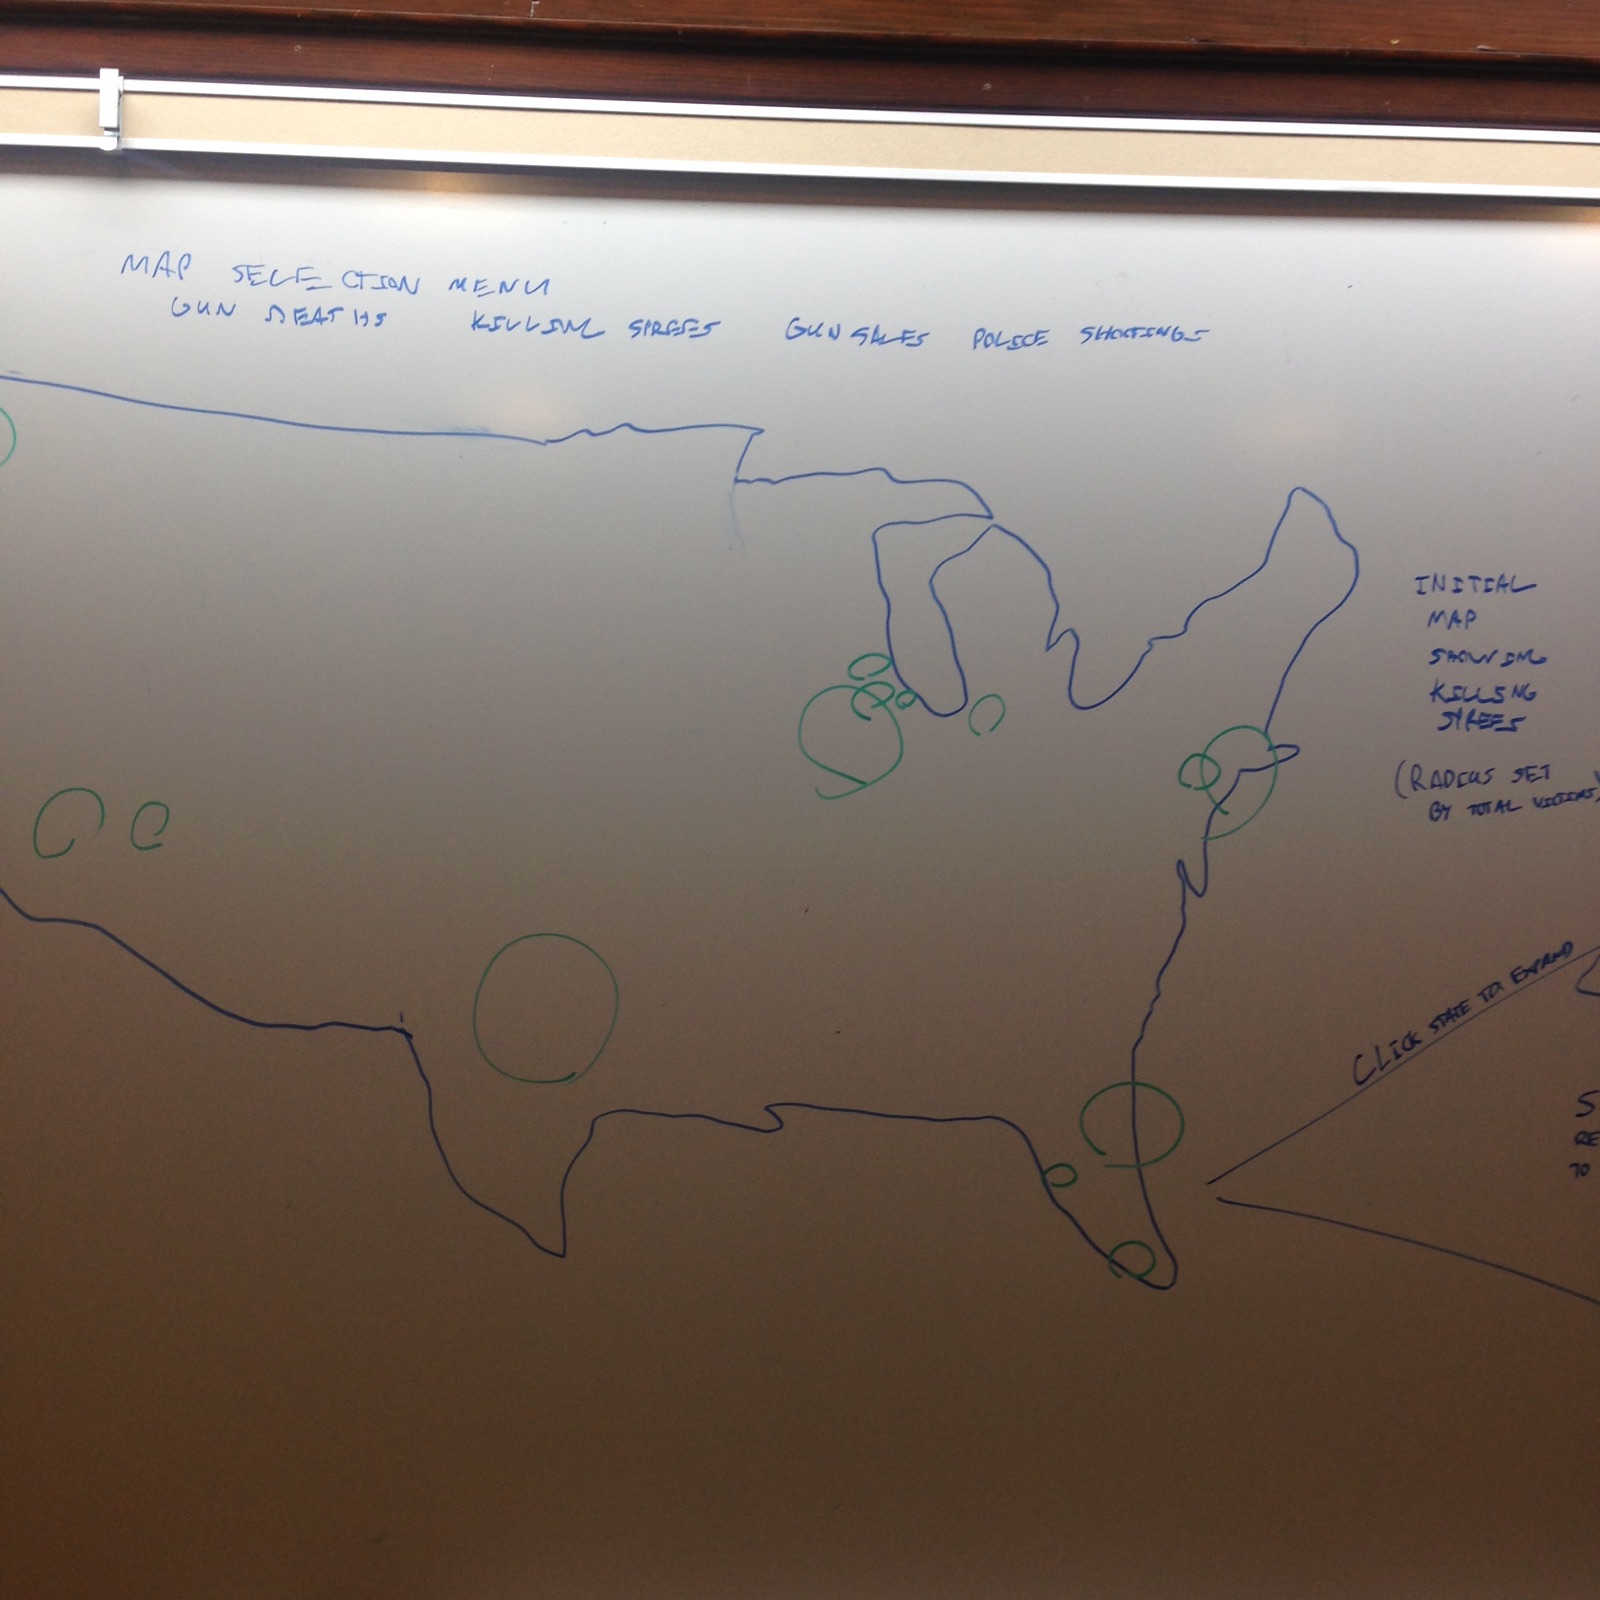 MAP SELECTION MENU
GUN DEATHS KILLING SPREES GUN SALES POLICE SHOOTINGS
INITIAL
MAP
SHOWING
KILLING
SPREES
(RADIUS SET
BY TOTAL VICTIMS)
CLICK STATE TO EXPAND
S
RE
TO